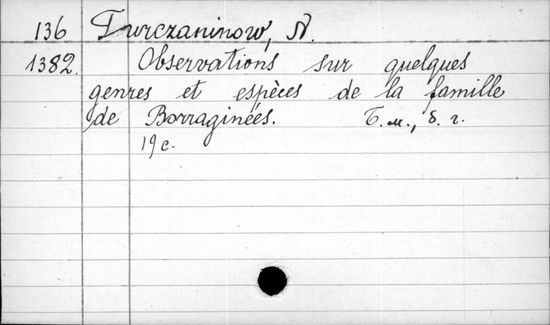 136 Turczaninow, N.
1382. Observations sur quelques
genres et espèces de la famille
de Borraginées. Б. м., б. г.
19 с.